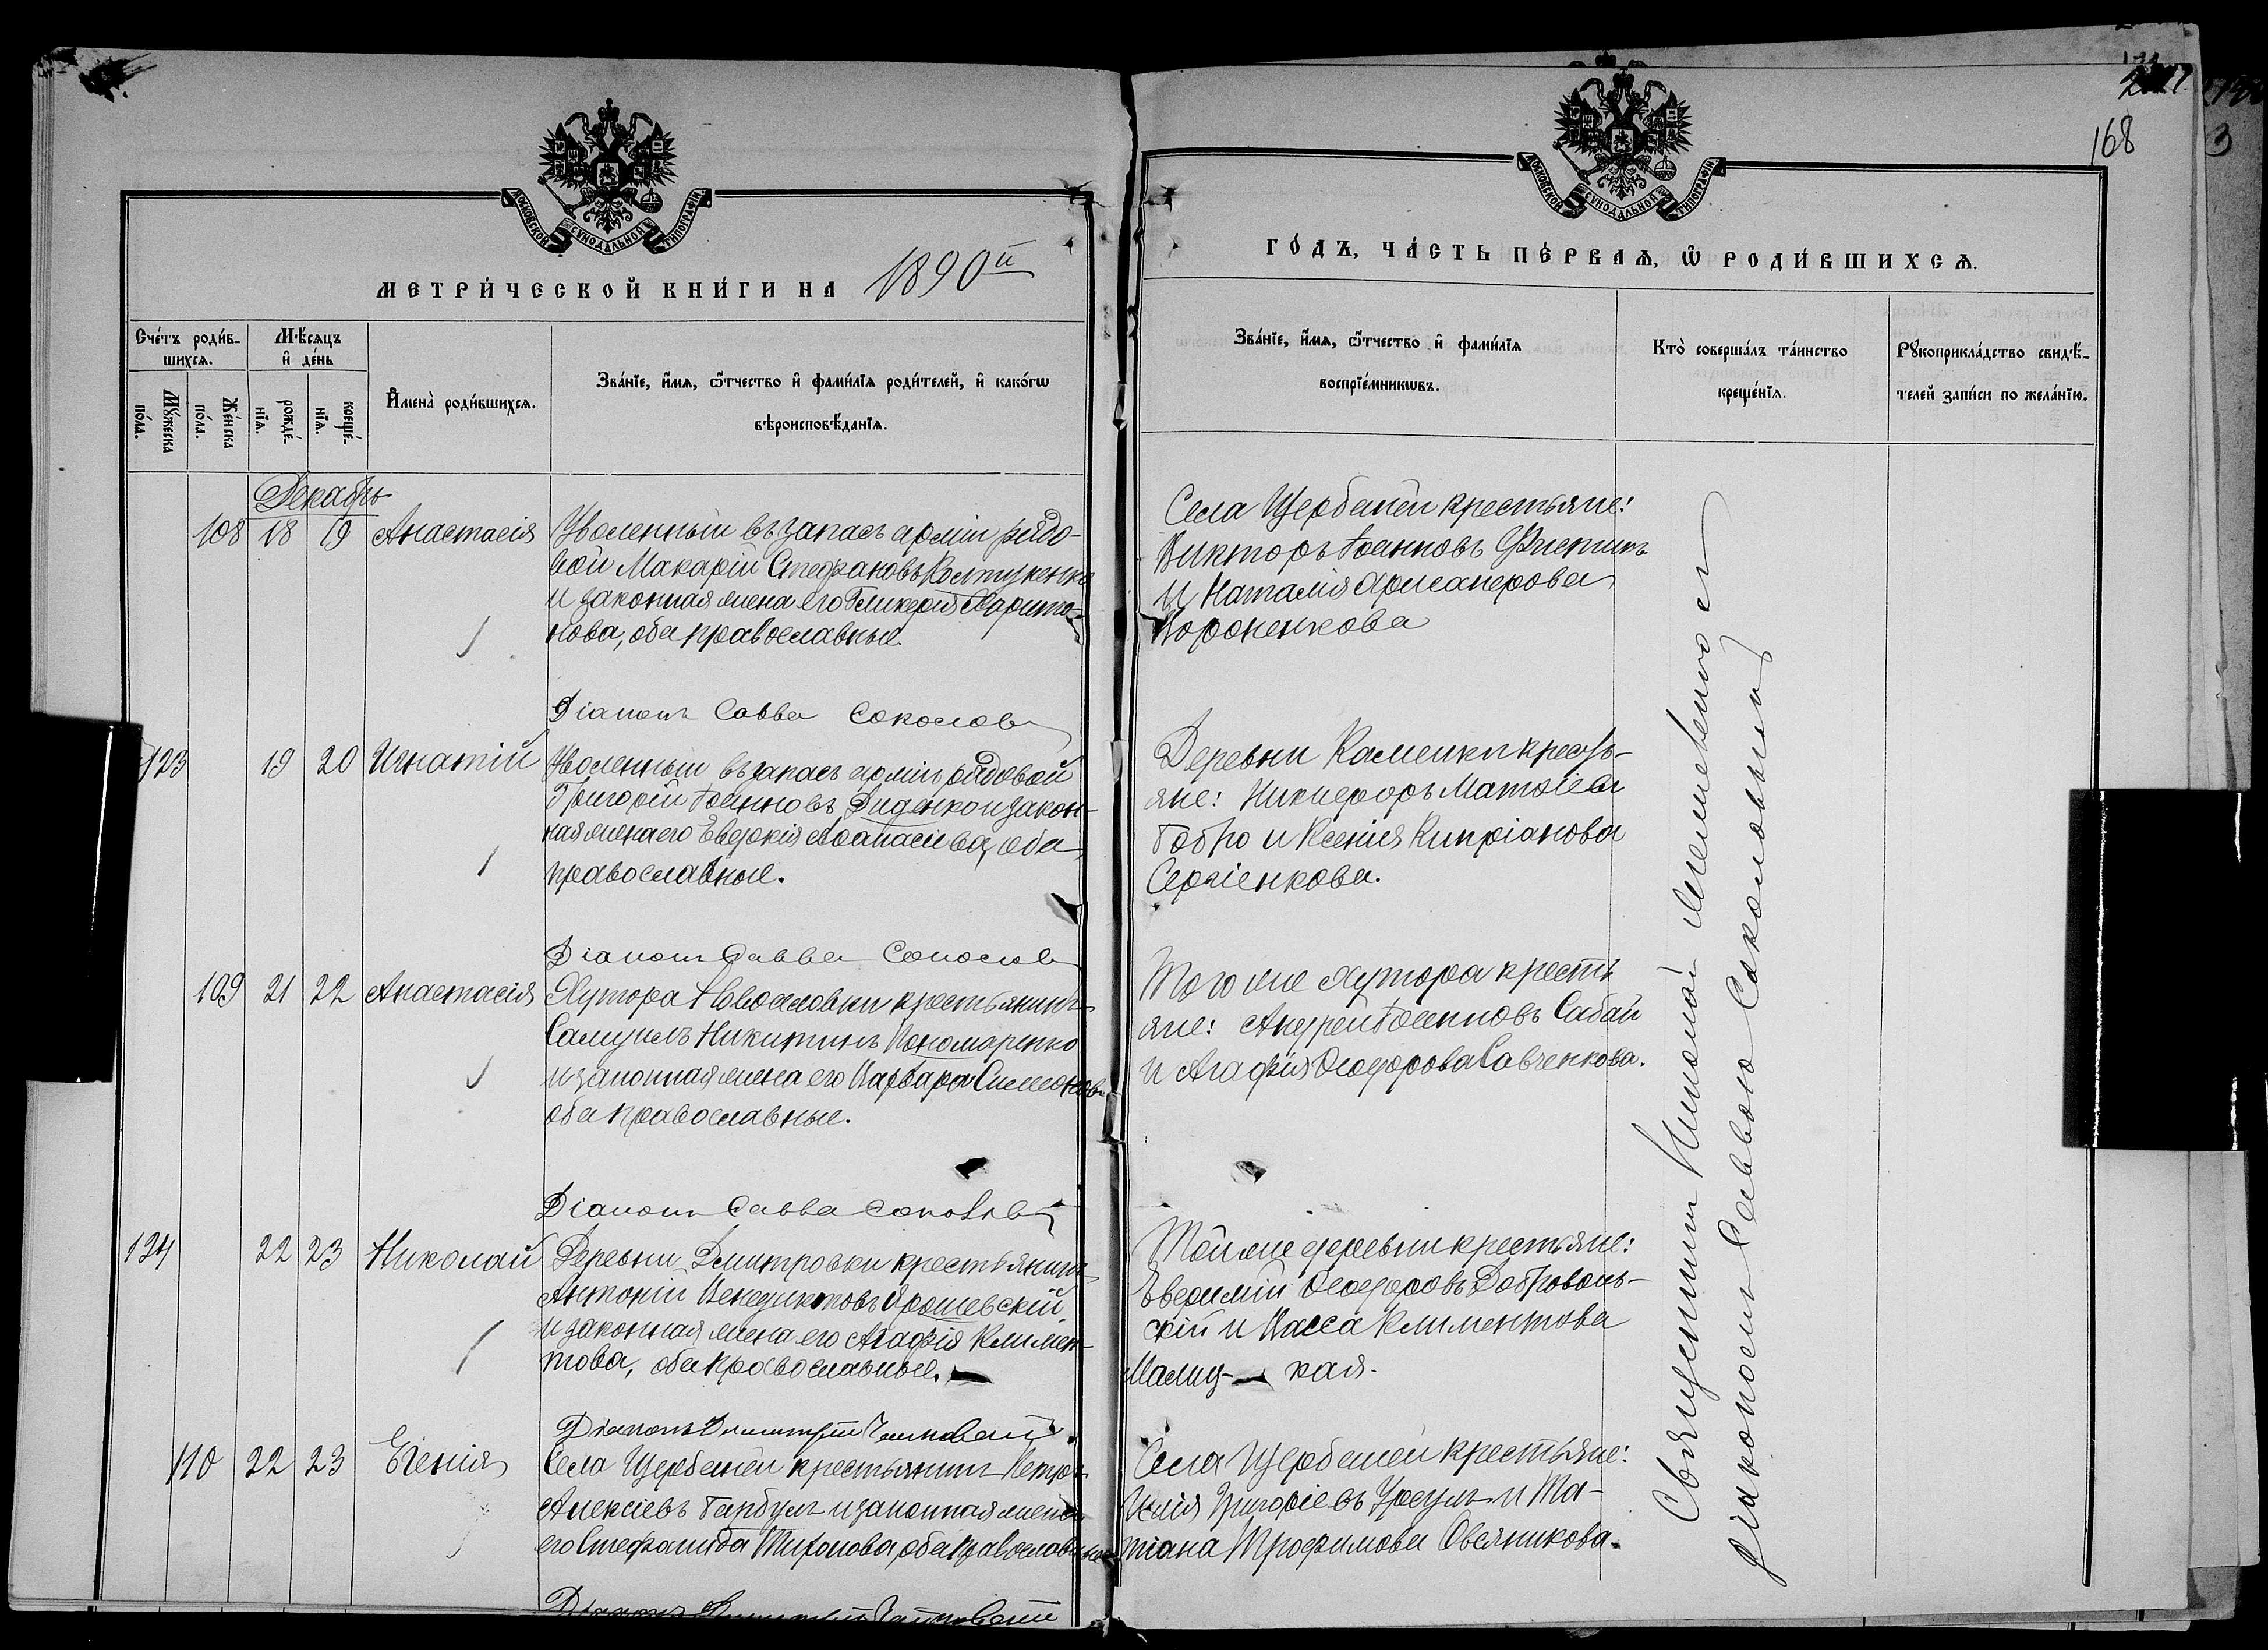 МОСКОВСКОЙ СѴНОДАЛЬНОЙ ТИПОГРАФІИ
МЕТРИ́ЧЕСКОЙ КНИ́ГИ НА 1890й
Сче́тъ роди́в-
шихся.
Мѣ́сяцъ
и҆ де́нь
Му́жеска
по́ла.
Же́нска
по́ла.
рожде́-
нїя.
креще́-
нїя.
И҆мена̀ роди́вшихся.
Зва́нїе, и҆́мя, ѻ҆́тчество и҆ фами́лїя роди́телей, и҆ како́гѡ
вѣроисповѣ́данїя.
Декабрь
108 18 19 Анастасія
Уволенный въ запасъ арміи рядо-
вой Макарій Стефановъ
и законная жена его Гликерія Харито-
нова, оба православные.
Діаконъ Савва Соколовъ
123 19 20 Игнатій
Уволенный въ запасъ арміи рядовой
Григорій Іоанновъ Диденко и закон-
ная жена его Евдокія Аѳанасіева, оба
православные.
Діаконъ Савва Соколовъ
109 21 22 Анастасія
Хутора Новоселовки крестьянинъ
Самуилъ Никитинъ Пономаренко
и законная жена его Варвара Симеонова
оба православные.
Діаконъ Савва Соколовъ
124 22 23 Николай
Деревни Дмитровки крестьянинъ
Антоній Венедиктовъ Ярошевскій
и законная жена его Агафія Климен-
това, оба православные.
Діаконъ Димитрій
110 22 23 Евгенія
Села Щербаней крестьянинъ Петръ
Алексіевъ Гарбузъ и законная жена
его Стефанида Тихонова, оба православные
Діаконъ Димитрій
168
МОСКОВСКОЙ СѴНОДАЛЬНОЙ ТИПОГРАФІИ
ГО́ДЪ, ЧА́СТЬ ПЕ́РВАЯ, Ѡ҆ РОДИ́ВШИХСЯ.
Зва́нїе, и҆́мя, ѻ҆́тчество и҆ фами́лїя
воспрїе́мникѡвъ.
Кто̀ соверша́лъ та́инство
креще́нїя.
Рꙋкоприкла́дство свидѣ́-
телей за́писи по жела́нїю.
Села Щербаней крестьяне:
Викторъ Іоанновъ
и Наталія
Вороненкова
Деревни Каменки кресть-
яне: Никифоръ Матѳіевъ
Бобро и Ксенія Кипріанова
Сергіенкова.
Того же хутора кресть
яне: Андрей Іоанновъ Сабай
и Агафія Ѳеодорова Савченкова.
Той же деревни крестьяне:
Евфимій Ѳеодоровъ Доброволь-
скій и Васса Климентова
Малиц- кая.
Села Щербаней крестьяне:
Илія Григоріевъ Урсулъ и Та-
тіана Трофимова Овсяникова.
Священникъ Николай съ
діакономъ Саввою Соколовымъ